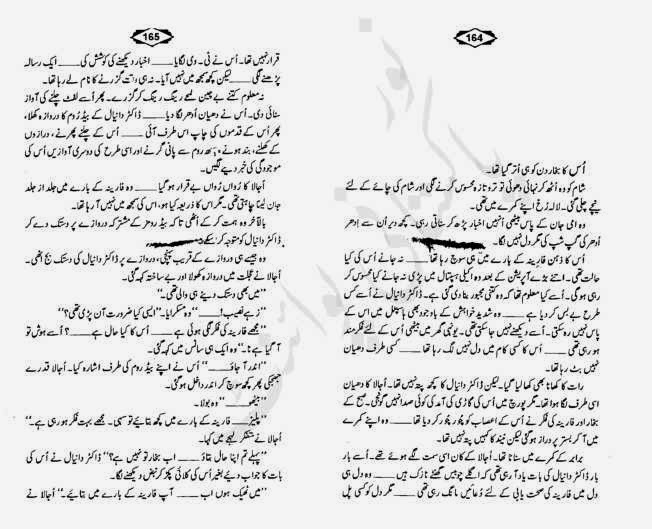 164
اُس کا بخار دن کو ہی اُتر گیا تھا۔
شام کو وہ اُٹھ کر نہائی دھوئی تو تر و تازہ محسوس کرنے لگی اور شام کی چائے کے لئے
نیچے چلی گئی۔ لالہ رُخ اپنے کمرے میں تھی۔
وہ امی جان کے پاس بیٹھی اُنہیں اخبار پڑھ کر سناتی رہی۔ کچھ دیر اُن سے اِدھر
اُدھر کی گپ شپ کی مگر دل نہیں لگا۔
اُس کا ذہن فارینہ کے بارے میں ہی سوچ رہا تھا ــــ نہ جانے اُس کی کیا
حالت تھی۔ اتنے بڑے آپریشن کے بعد وہ اکیلی ہسپتال میں پڑی نہ جانے کیا محسوس کر
رہی ہو گی۔ اُسے کیا معلوم تھا کہ وہ کتنی مجبور بنا دی گئی ہے۔ ڈاکٹر دانیال نے اُسے کس
طرح بے بس کر دیا ہے ــــ وہ شدید خواہش کے باوجود بھی ہاسپٹل میں اس کے
پاس نہیں رہ سکتی۔ اُسے دیکھنے نہیں جا سکتی تھی۔ یونہی گھر میں بیٹھی اُس کے لئے فکرمند
ہو رہی تھی ــــ اُس کا کسی کام میں دل نہیں لگ رہا تھا ــــ کسی طرف دھیان
نہیں بٹ رہا تھا۔
رات کا کھانا بھی کھا لیا گیا۔ لیکن ڈاکٹر دانیال کا کچھ پتہ نہیں تھا۔ اُجالا کا دھیان
اسی طرف لگا ہوا تھا۔ مگر پورچ میں اُس کی گاڑی کی آمد کی کوئی صدا نہیں گونجی۔ صبح کے
بخار اور فارینہ کی فکر نے اُس کے اعصاب کو چُور چُور کر دیا تھا ــــ وہ اپنے کمرے
میں آ کر بستر پر دراز ہو گئی لیکن نیند کا کہیں پتہ نہیں تھا۔
برابر کے کمرے میں سناٹا تھا۔ اُجالا کے کان اسی سمت لگے ہوئے تھے۔ اُسے بار
بار ڈاکٹر دانیال کی بات یاد آ رہی تھی کہ اگلے چوبیس گھنٹے نازک ہیں ــــ وہ دل ہی
دل میں فارینہ کی صحت یابی کے لئے دُعائیں مانگ رہی تھی ــــ مگر دل کو کسی پل
165
قرار نہیں تھا۔ اُس نے ٹی۔ وی لگایا ــــ اخبار دیکھنے کی کوشش کی ــــ ایک رسالہ
پڑھنے لگی ــــ لیکن کچھ سمجھ میں نہیں آیا۔ نہ ہی وقت گزرنے کا نام لے رہا تھا۔
نہ معلوم کتنے بے چین لمحے رینگ رینگ کر گزرے۔ پھر اُسے لفٹ چلنے کی آواز
سنائی دی۔ اُس نے دھیان اُدھر لگا دیا ــــ ڈاکٹر دانیال کے بیڈ رُوم کا دروازہ کھلا،
پھر اُس کے قدموں کی چاپ اس طرف آئی ــــ اُس کے چلنے پھرنے، درازوں
کے کھلنے، بند ہونے، روم سے پانی گرنے اور اسی طرح کی دوسری آوازیں اُس کی
موجودگی کی خبر دینے لگیں۔
اُجالا کا رُواں رُواں بے قرار ہو گیا ــــ وہ فارینہ کے بارے میں جلد از جلد
جان لینا چاہتی تھی۔ مگر اس کا ذریعہ کیا ہو، اس کی سمجھ میں نہیں آ رہا تھا۔
بالآخر وہ ہمت کر کے اُٹھی تاکہ بیڈ رومز کے مشترکہ دروازے پر دستک دے کر
ڈاکٹر دانیال کو متوجہ کر سکے
وہ جیسے ہی دروازے کے قریب پہنچی، دروازے پر ڈاکٹر دانیال کی دستک بج اُٹھی۔
اُجالا نے عجلت میں دروازہ کھولا اور بے ساختہ کہہ گئی۔
”میں بھی دستک دینے ہی والی تھی۔“
”زہے نصیب! ــــ“ وہ مسکرایا۔ ”ایسی کیا ضرورت آن پڑی تھی؟“
”مجھے فارینہ کی فکر لگی ہوئی ہے ــــ اُس کا کیا حال ہے ــــ؟ اُسے ہوش تو
آ گیا ہے نا۔“ وہ ایک ہی سانس میں کہہ گئی۔
”اندر آ جاؤ ــــ“ اُس نے اپنے بیڈ روم کی طرف اشارہ کیا۔ اُجالا قدرے
جھجکی پھر کچھ سوچ کر اندر داخل ہو گئی۔
”بیٹھو ــــ“ وہ بولا۔
”پلیز ــــ فارینہ کے بارے میں کچھ بتائیے تو سہی۔ مجھے بہت فکر ہو رہی ہے۔“
اُجالا نے متفکر لہجے میں کہا۔
”پہلے تم اپنا حال بتاؤ ــــ اب بخار تو نہیں ہے؟“ ڈاکٹر دانیال نے اُس کی
بات کا جواب دیئے بغیر اُس کی کلائی پکڑ کر نبض دیکھنے لگا۔
”میں ٹھیک ہوں اب ــــ آپ فارینہ کے بارے میں بتائیے۔“ اُجالا نے